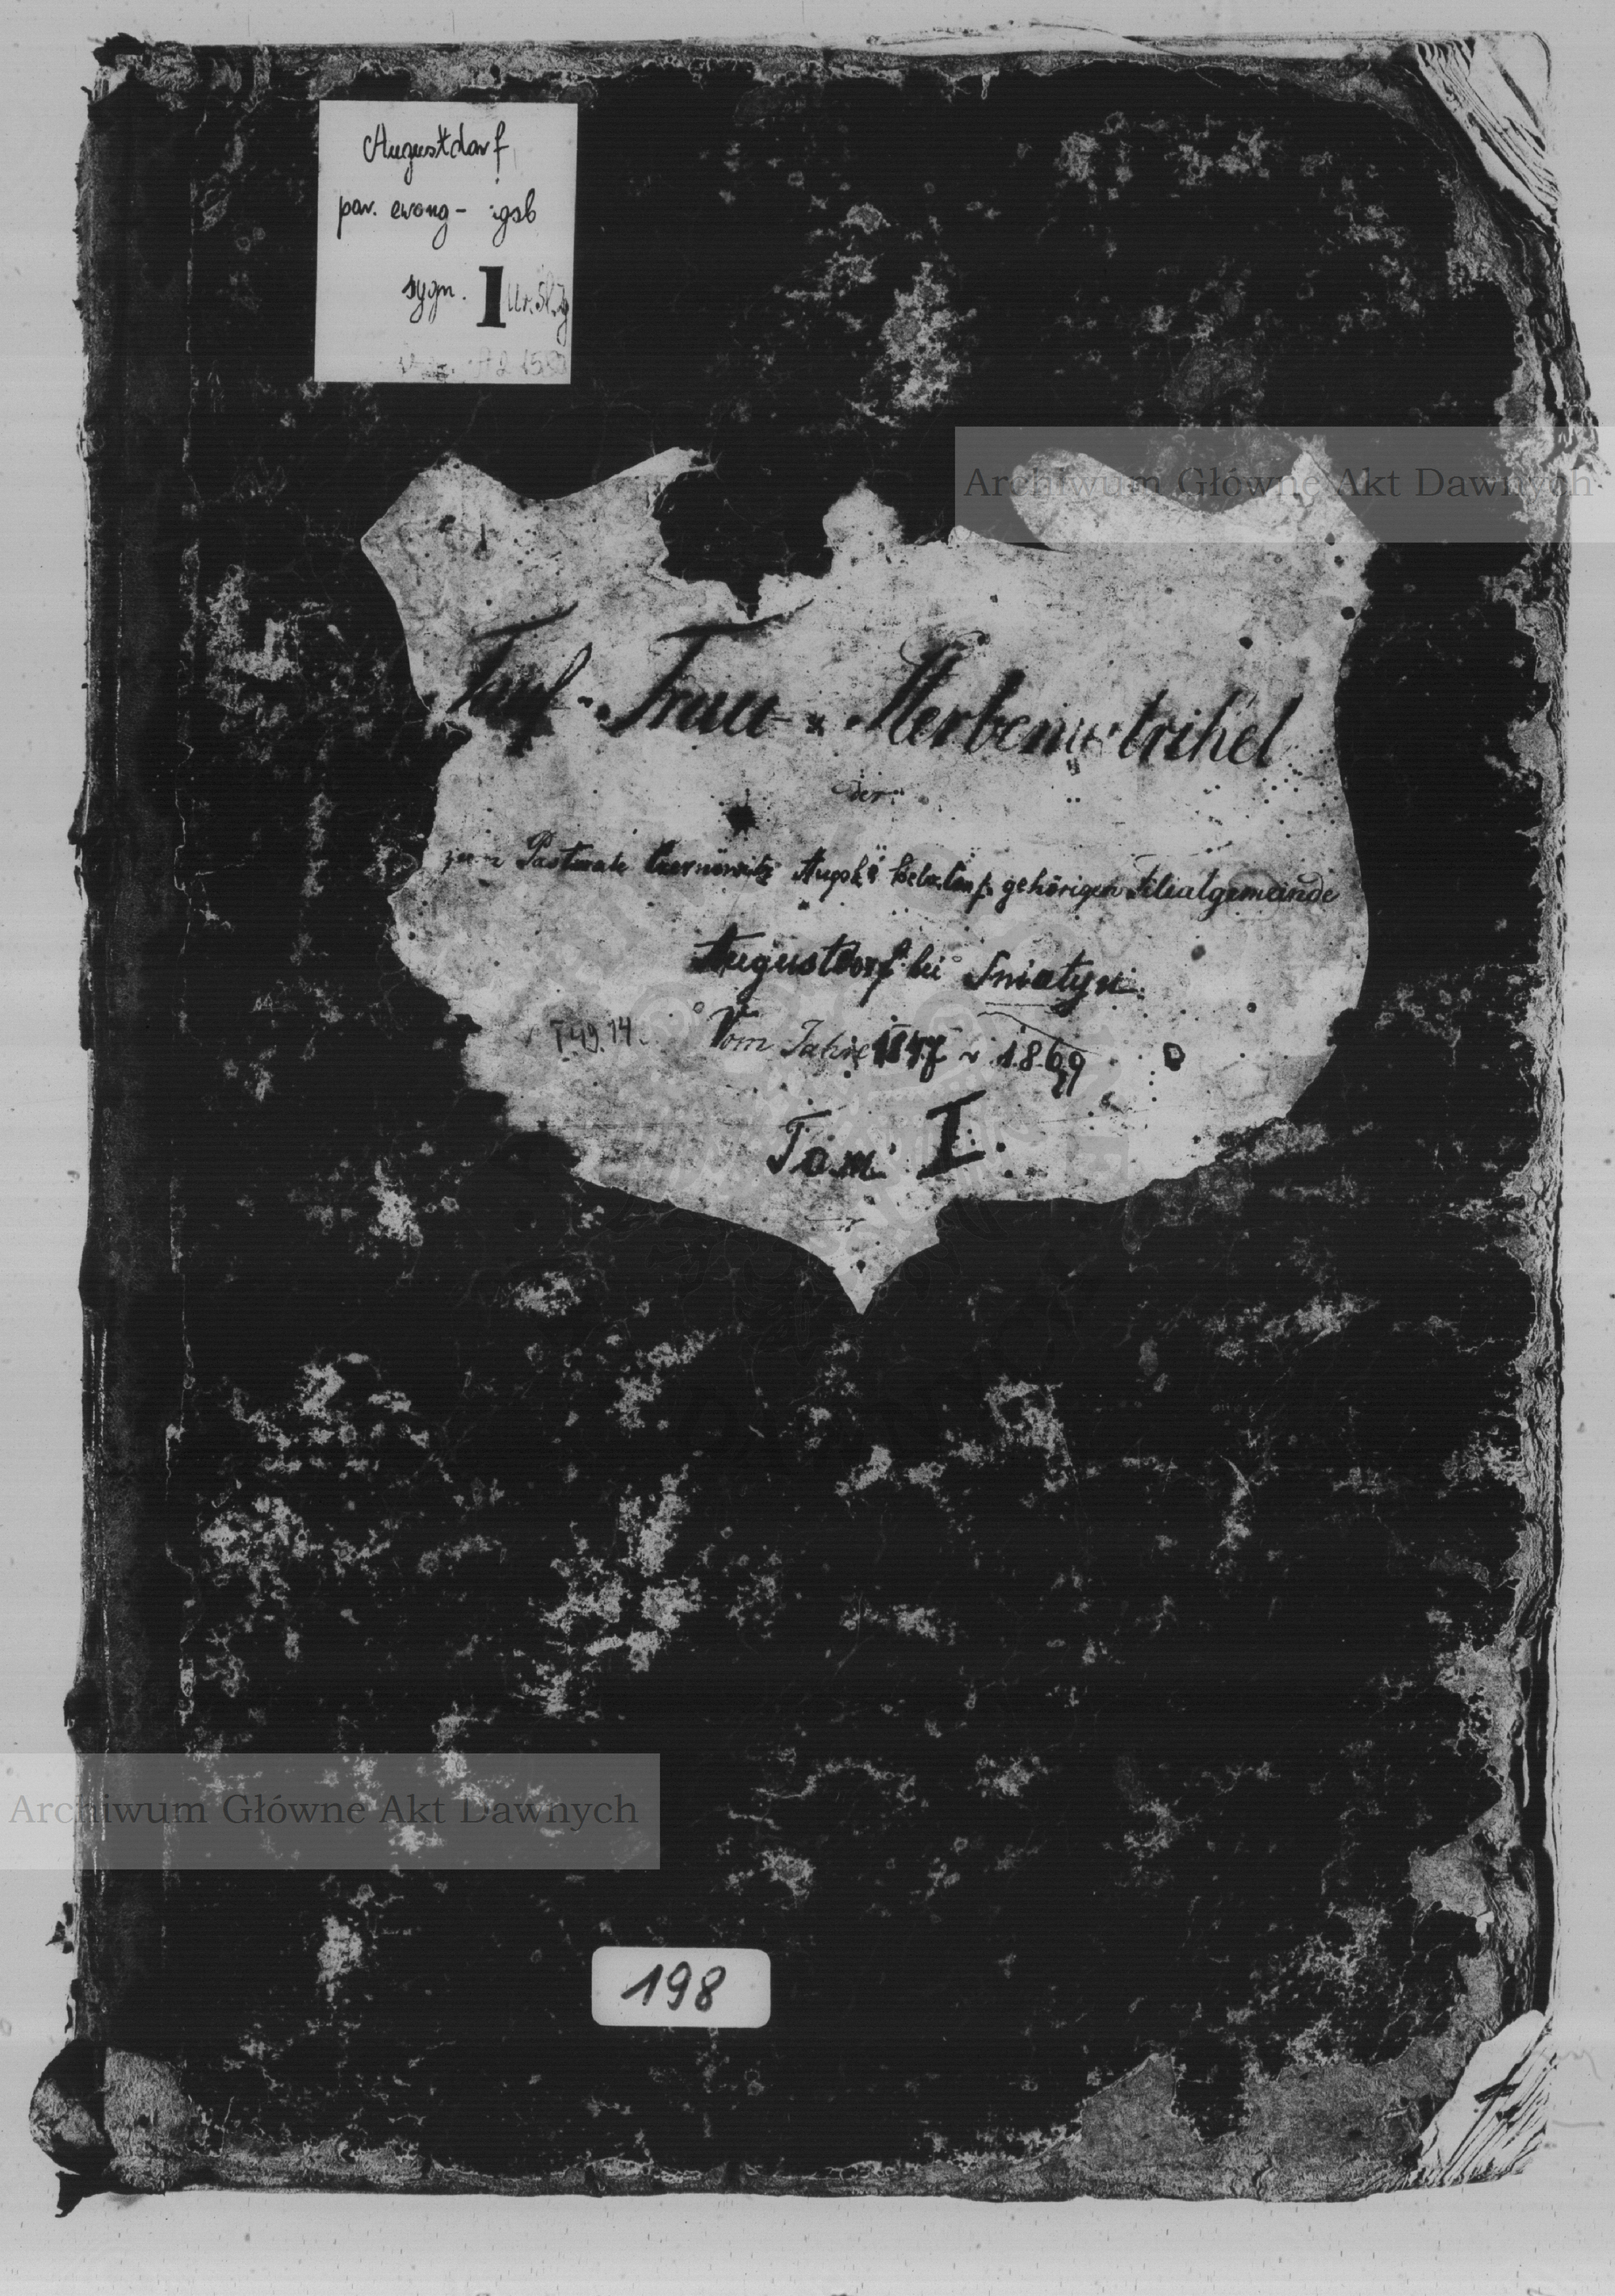 Augustdorf
par. ewang- igsb
sygn. I Ur. Śl. Zg
Archiwum Główne Akt Dawnych
Tauf- Trau- u. Sterbematrikel
der
zum Pastorate Czernowitz gehörigen Filialgemeinde
Augustdorf bei Sniatyn.
T 49. 14. Vom Jahre 1847 - 1869
Tom I.
Archiwum Główne Akt Dawnych
198